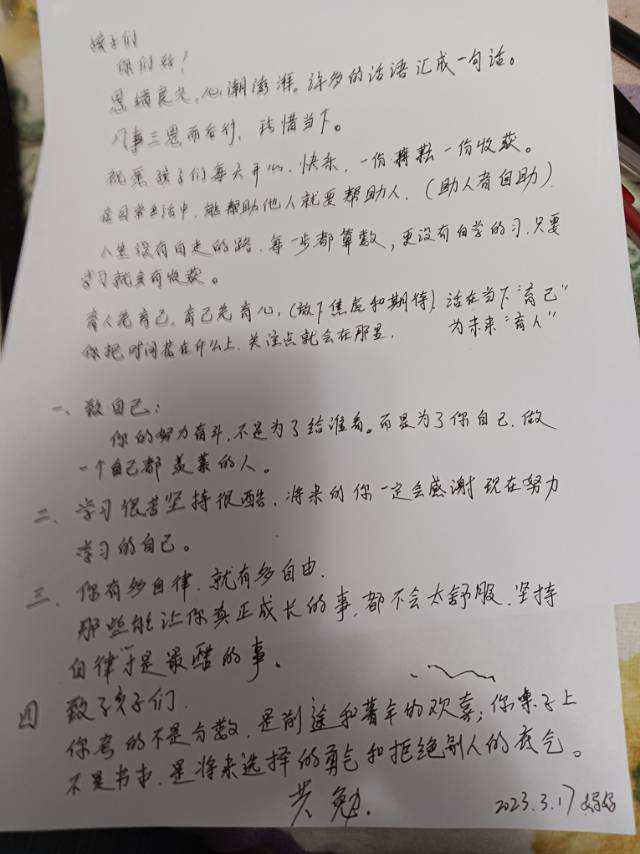 孩子们
你们好！
思绪良久，心潮澎湃。许多的话语汇成一句话。
凡事三思而后行，珍惜当下。
祝愿孩子们每天开心、快乐，一份耕耘一份收获。
在日常生活中，能帮助他人就要帮助人，（助人者自助）
人生没有白走的路，每一步都算数，更没有白学的习，只要
学习就会有收获。
育人先育己，育己先育心，（放下焦虑和期待）活在当下“育己”
你把时间花在什么上，关注点就会在那里， 为未来“育人”
一、致自己：
你的努力奋斗，不是为了给谁看。而是为了你自己，做
一个自己都羡慕的人。
二、学习很苦坚持很酷，将来的你一定会感谢现在努力
学习的自己。
三、你有多自律，就有多自由，
那些能让你真正成长的事，都不会太舒服，坚持
自律才是最酷的事、
四 致孩子们，
你考的不是分数，是前途和暮年的欢喜；你桌子上
不是书本，是将来选择的勇气和拒绝别人的底气。
共勉．
2023.3.17 妈妈